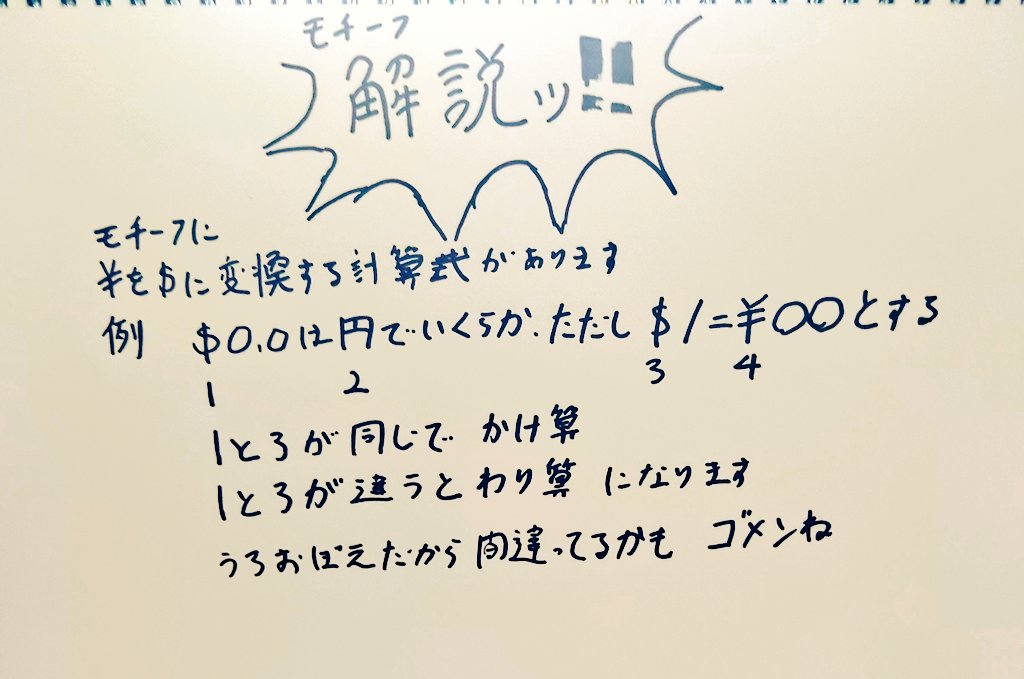 モチーフ
解説ッ!!
モチーフに
¥を$に変換する計算式があります
例 $0.0は円でいくらか.ただし$1=¥〇〇とする
1 2 3 4
1と3が同じで かけ算
1と3が違うとわり算 になります
うろおぼえだから間違ってるかも ゴメンね